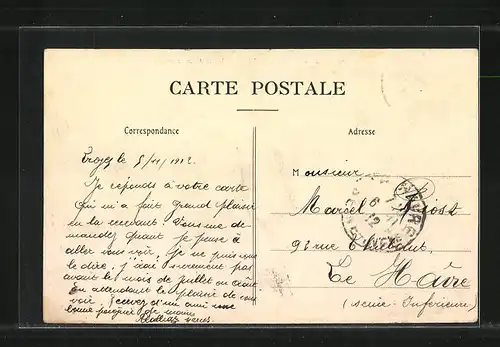 CARTE POSTALE
Correspondance
Adresse
Troyes le 5/11/1912.
Je réponds à votre carte
qui m'a fait grand plaisir
en la recevant. Vous me
mandez quant je pense à
aller vous voir. Je ne puis vous
le dire, j'irai surement pas
avant le mois de juillet ou août
En attendant le plaisir de vous
voir. Recevez d'un ami une
bonne poignée de main
Monsieur
Marcel
93 rue
Le Hâvre
(Seine Inférieure)